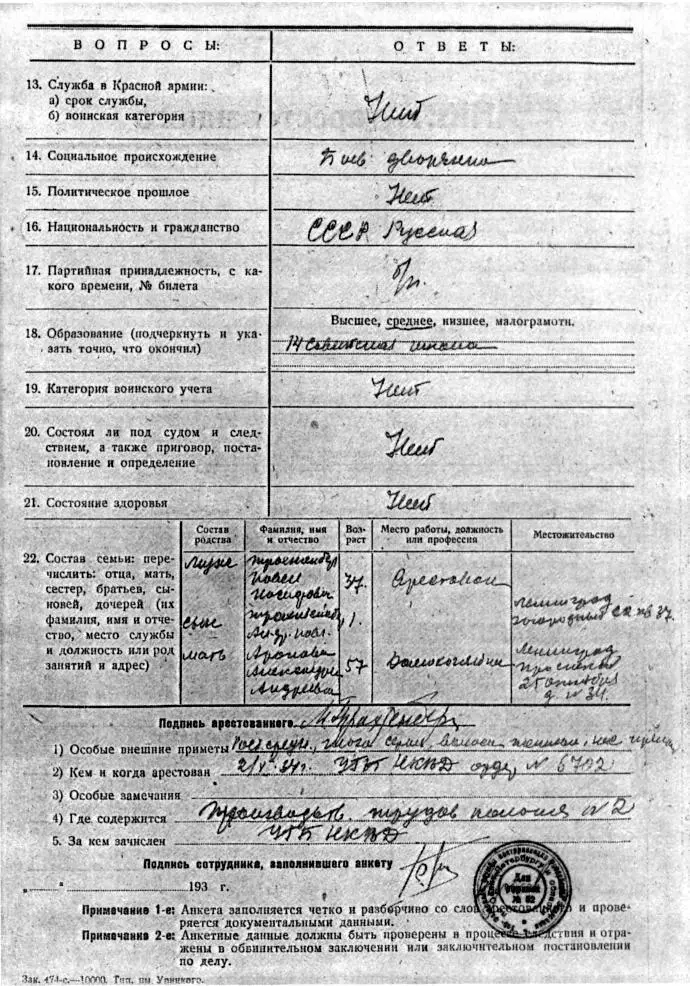 ВОПРОСЫ:
ОТВЕТЫ:
13. Служба в Красной армии:
а) срок службы,
б) воинская категория
Нет
14. Социальное происхождение
дворянка
15. Политическое прошлое
Нет
16. Национальность и гражданство
СССР Русская
17. Партийная принадлежность, с ка-
кого времени, № билета
б/п.
18. Образование (подчеркнуть и ука-
зать точно, что окончил)
Высшее, среднее, низшее, малограмотн.
14 Советская школа
19. Категория воинского учета
Нет
20. Состоял ли под судом и след-
ствием, а также приговор, поста-
новление и определение
Нет
21. Состояние здоровья
Нет
22. Состав семьи: пере-
числить: отца, мать,
сестер, братьев, сы-
новей, дочерей (их
фамилия, имя и отче-
ство, место службы
и должность или род
занятий и адрес)
Состав
родства
Фамилия, имя
и отчество
Воз-
раст
Место работы, должность
или профессия
Местожительство
муж
Павел
Иосифович
37.
Арестован
сын
1.
Ленинград
кв 37.
мать
Александра
Андреевна
57
Домохозяйка
Ленинград
Проспект
25 Октября
д. № 34.
Подпись арестованного
1) Особые внешние приметы Рост средн., глаза серые, волосы
2) Кем и когда арестован УГБ НКВД ордер № 6702
3) Особые замечания
4) Где содержится трудов колония № 2
5. За кем зачислен УГБ НКВД
Подпись сотрудника, заполнившего анкету
„ “ 193 г.
Для
№ 62
Примечание 1-е: Анкета заполняется четко и разборчиво со слов арестованного и прове-
ряется документальными данными.
Примечание 2-е: Анкетные данные должны быть проверены в процессе следствия и отра-
жены в обвинительном заключении или заключительном постановлении
по делу.
Зак. 474-с.—10000. Тип. им Урицкого.